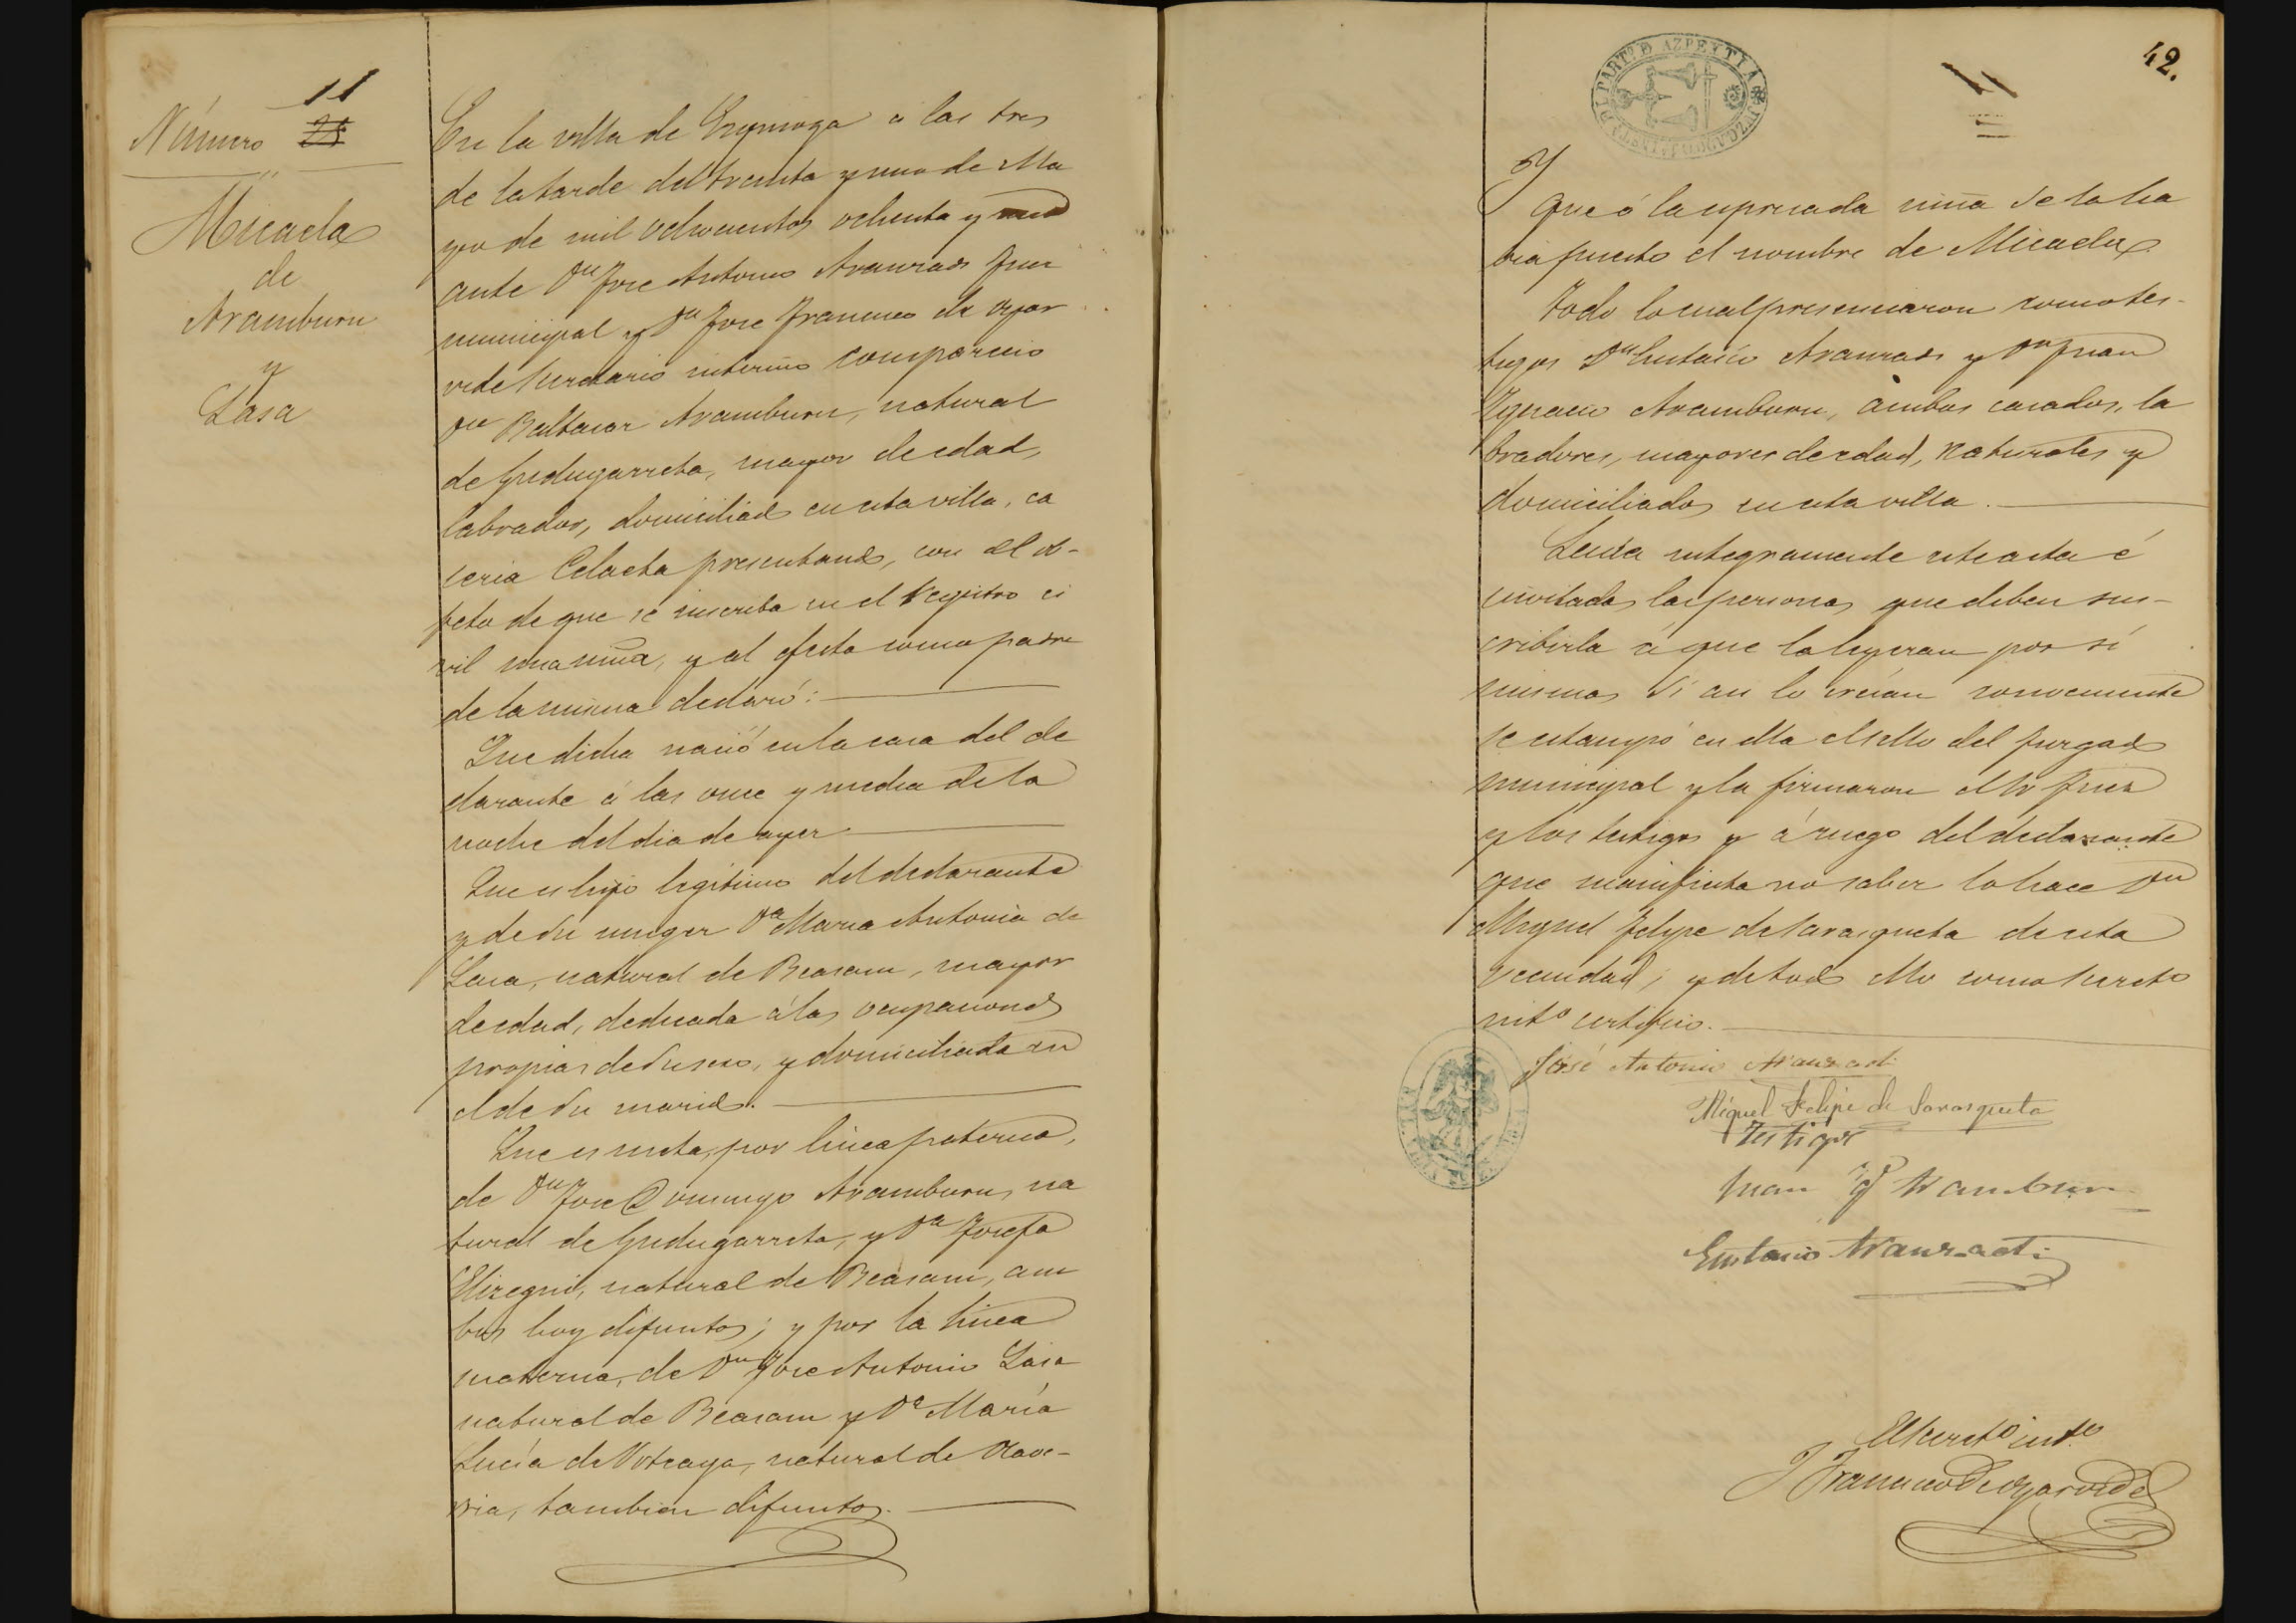 11
Número 25
Micaela
de
Aramburu
y
Lasa
En la villa de Ezquioga á las tres
de la tarde del treinta y uno de Ma
yo de mil ochocientos ochenta y
ante Dn Jose Antonio Aranzadi Juez
municipal y Dn Jose Francisco de Oyar
vide Secretario interino compareció
Dn Baltasar Aramburu, natural
de Gudugarreta, mayor de edad,
labrador, domiciliado en esta villa, ca
seria Celaeta presentando, con el ob-
jeto de que se inscriba en el Registro ci
vil una niña, y al efecto como padre
de la misma declaró:
Que dicha nació en la casa del de
clarante á las once y media de la
noche del dia de ayer
Que es hijo legitimo del declarante
y de su muger Da Maria Antonia de
Lasa, natural de Beasain, mayor
de edad, dedicada á las ocupaciones
propias de su sexo, y domiciliada en
el de su marido.
Que es nieta, por linea paterna,
de Dn Jose Domingo Aramburu, na
tural de Gudugarreta, y Da Josefa
Elizegui, natural de Beasain, am
bos hoy difuntos; y por la linea
materna, de Dn Jose Antonio Lasa
natural de Beasain y Da María
Lucía de natural de Olave-
rria, tambien difuntos.
42.
PARTO D AZPEYTIA
Y
que á la expresada niña se la ha
bia puesto el nombre de Micaela.
Todo lo cual presenciaron como tes-
tigos Dn Eustasio Aranzadi y Dn Juan
Ygnacio Aramburu, ámbos casados, la
bradores, mayores de edad, naturales y
domiciliados en esta villa.
Leida integramente esta acta é
invitadas las personas que deben sus-
cribirla á que la leyeran por sí
mismas si asi lo creian conveniente
se estampó en ella el sello del juzgado
municipal y la firmaron el Sr Juez
y los testigos y á ruego del declarante
que manifiesta no saber lo hace Dn
Miguel Felipe de Sarasqueta de esta
vecindad; y de todo ello como Secreto
nito certifico.
José Antonio Aranzadi
Miguel Felipe de Sarasqueta
Testigos
Juan Yg Aramburu
Eustasio Aranzadi
El Secreto into
J Francisco de Oyarvide